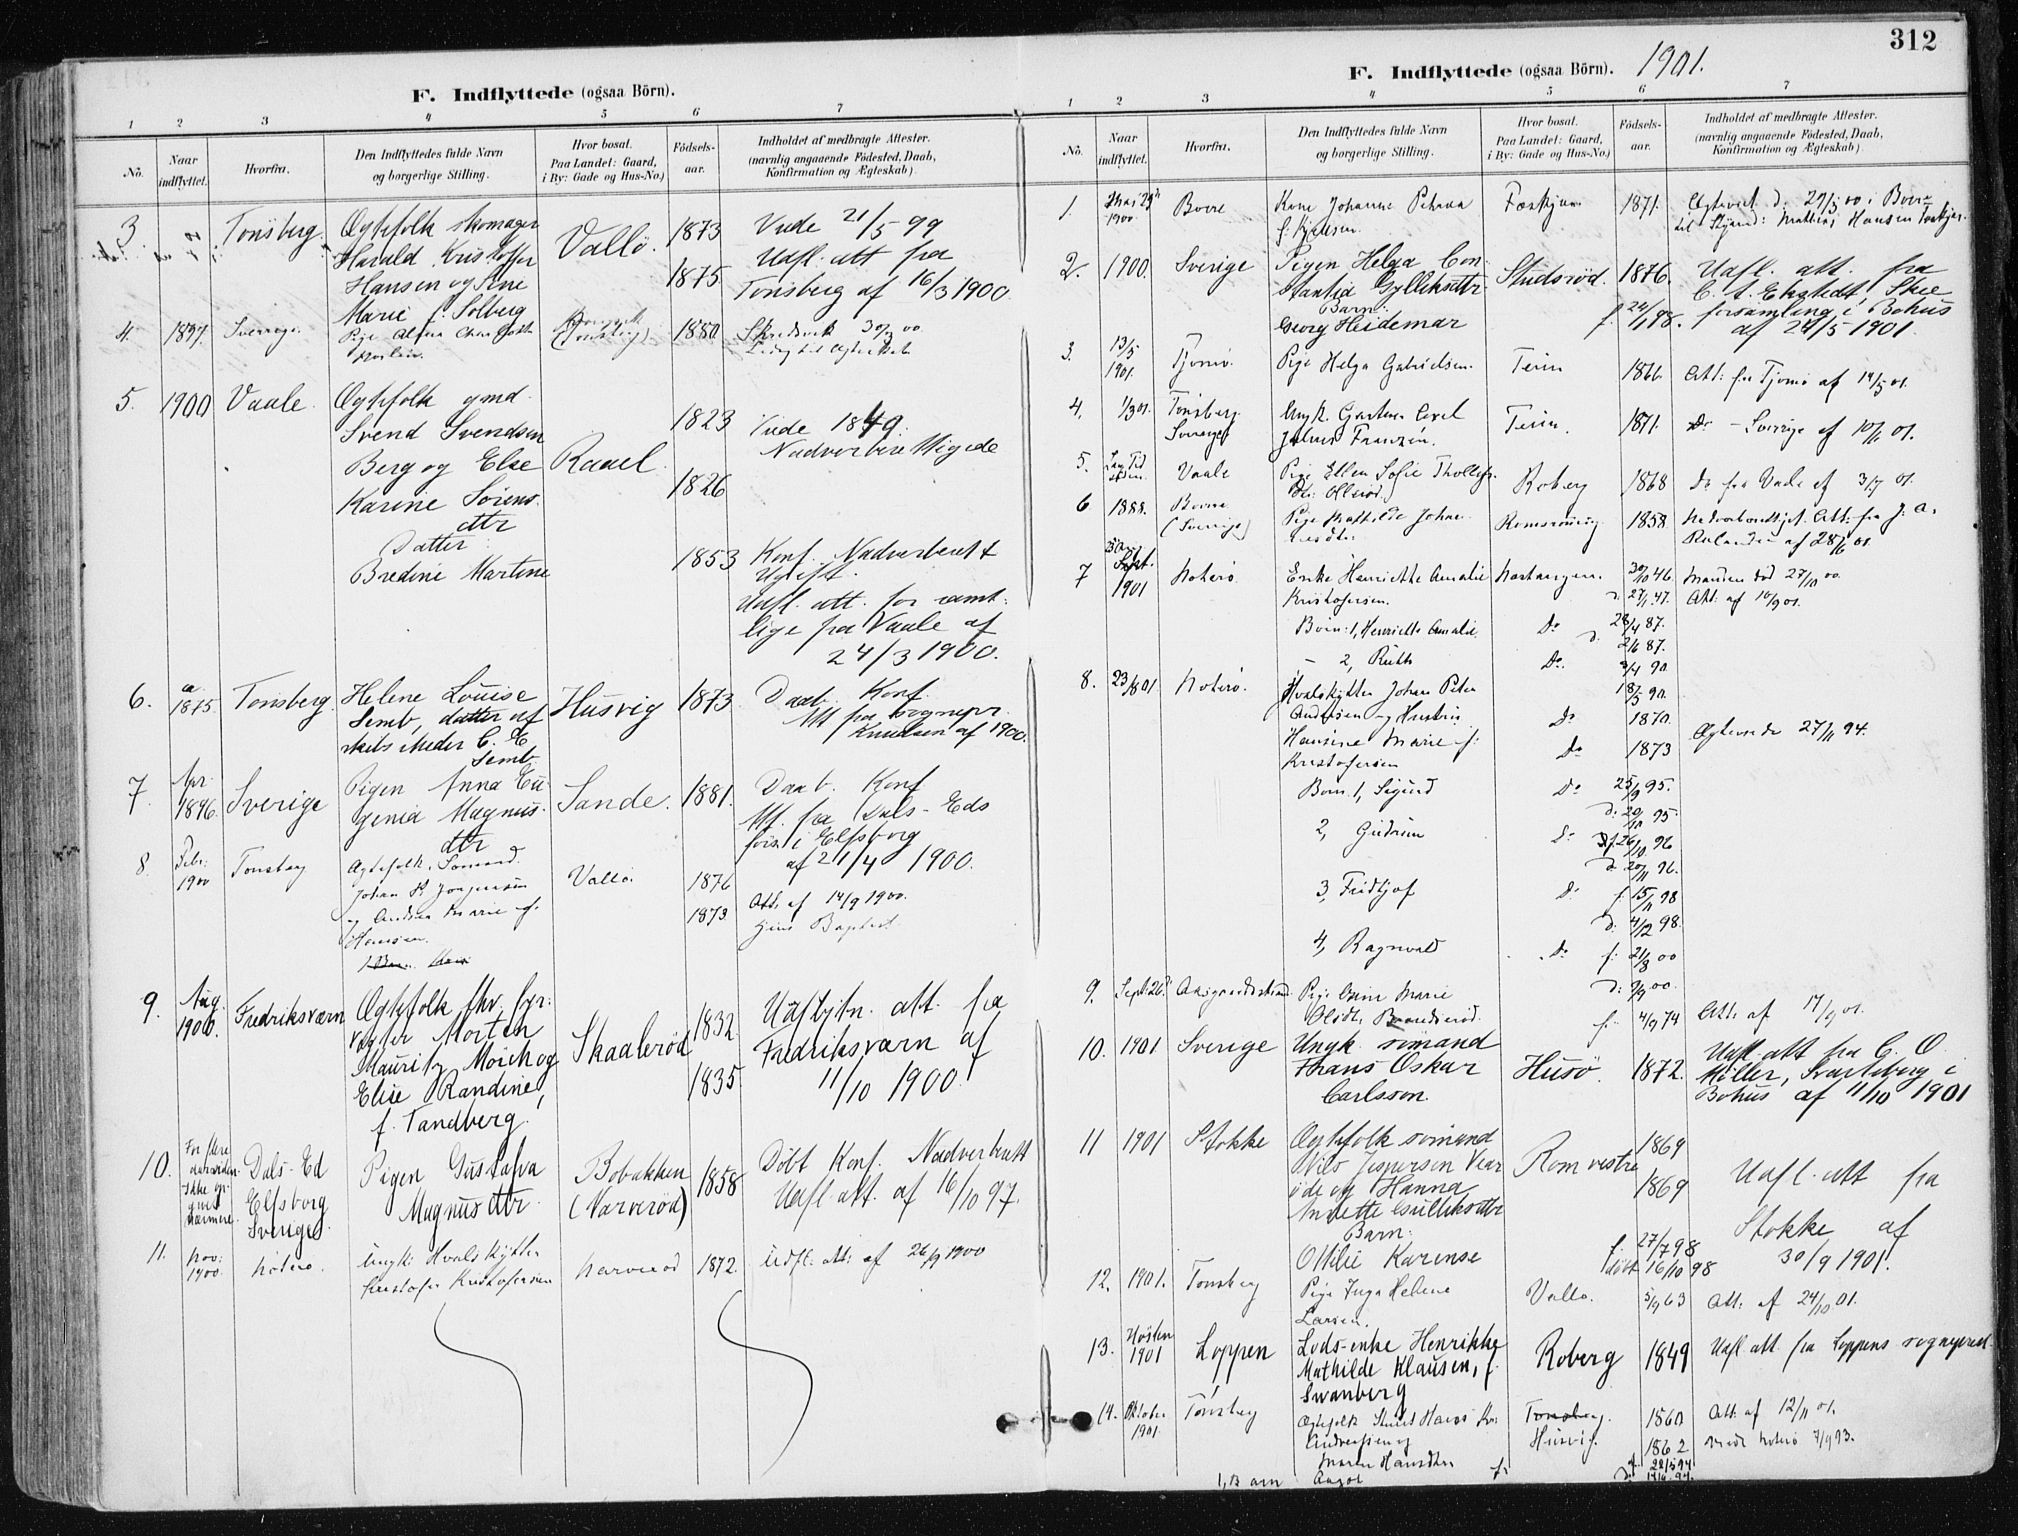 F. Indflyttede (ogsaa Börn).
1 2 3 4 5 6 7
No.
Naar indflyttet.
Hvorfra.
Den Indflyttedes fulde Navn
og borgerlige Stilling.
Hvor bosat.
Paa Landet: Gaard,
i By: Gade og Hus-No.)
Fødsels-
aar.
Indholdet af medbragte Attester.
(navnlig angaaende Födested, Daab,
Konfirmation og Ægteskab)
3 Tønsberg. Ægtefolk skomager Vallö. 1873 Viede 21/5 99
Harald Kristoffer 1875 Uafl. att fra
Hansen og Ane Tønsberg af 16/3 1900.
Marie f. Solberg
4. Sverige. Pige 1880 30/ 00
5. 1900 Vaale. Ægtefolk gmd. 1823 Viede 1849.
Svend Svendsen Nadverberettigede
Berg og Else Raael. 1826
Karine Sörens-
dtr
Datter:
Bredine Martine 1853 Konf. Nadverberet
Ugift.
Uafl. att. for samt-
lige fra Vaale af
24/3 1900.
6. 1875. Tønsberg. Helene Louise Husvig 1873 Daab. Konf.
Semb, datter af Att fra sognepr.
skibsreder C. E. Knudsen af 1900.
Semb.
7. Apr. 1896. Sverige Pigen Anna Eu- Sande. 1881. Daab. Konf
genia Magnus- Att. fra Dals-Eds
dtr förs. i Elfsborg
af 21/4 1900.
8. Febr. 1900 Tønsberg Ægtefolk. Sømand. Vallö. 1876
Johan Jørgensen 1873. Att. af 14/9 1900.
og Andrea Marie f. Baptist.
Hansen.
9. Aug. 1900. Fredriksværn Ægtefolk fhv. fyr- Skaalerød 1832. Udflytn. att. fra
vogter Morten 1835. Fredriksværn af
Mauritz Mörch og 11/10 1900.
Elise Randine,
f. Tandberg.
10. For flere Dals-Ed Pigen Gustafva Bobakken 1858 Döbt Konf. Nadverberett
aar siden. Elfsborg Magnusdtr. (Narverød) Uafl. att. af 16/10 97.
Ikke Sverige
nærmere.
11. Nov. 1900. Nøterø. Ungk. Hvalskytter Narverød 1872. Udfl. att. af 26/9 1900
Kristofer Kristofersen
312
F. Indflyttede (ogsaa Börn). 1901.
1 2 3 4 5 6 7
No.
Naar indflyttet.
Hvorfra.
Den Indflyttedes fulde Navn
og borgerlige Stilling.
Hvor bosat.
Paa Landet: Gaard,
i By: Gade og Hus-No.)
Fødsels-
aar.
Indholdet af medbragte Attester.
(navnlig angaaende Födested, Daab,
Konfirmation og Ægteskab)
1. Mai 29 1900. Borre Kone Johanne Petrea 1871. Ægteviet d. 29/5 00 i Borre
til Mathias Hansen
2. 1900. Sverige Pigen Helga Con- Studsrød. 1876. Uafl. att. fra
stantia Gylleksdtr. C. A. Ekstedt, Skee
Barn: forsamling i Bohus
Georg Heidemar f. 24/1 98. af 24/5 1901.
3. 13/5 1901. Tjømø. Pige Helga Gabrielsen. Teien 1866. Att. fra Tjømø af 14/5 01.
4. 1/3 01. Tønsberg Ungk. Gartner Axel Teien. 1871. Do - Sverrige af 10/ 01.
Sverige Julius Franzén.
5. Vaale Pige Ellen Sofie Roberg 1868 Do fra Vaale af 3/7 01.
6 1888. Borre Pige Mathilde Johan- 1858. Att. fra J. A.
(Sverige) nesdtr. af 28/6 01.
7 30 Sept. 1901 Nøterø. Enke Henriette Amalie 30/10 46. Manden død 27/10 00.
Kristofersen. d. 27/1. 47. Att. af 10/9 01.
Børn: 1, Henriette Amalie Do 28/4 87.
d. 2/6 87.
- 2, Ruth Do. 3/4 90.
18/5 90.
8. 23/8 01 Nøterø. Hvalskytter Johan Peter
Andersen og Hustru Do 1870.
Hansine Marie f. Do 1873 Ægteviede 27/11 94.
Kristofersen
Børn. 1, Sigurd Do 25/9 95.
d. 20/10 95.
2, Gudrun Do f. 26/10. 96
d. 20/11 96.
3, Fridtjof Do f. 15/11 98
d. 4/12 98.
4, Ragnvald Do f. 21/8 00
d. 9/9 00.
9. Sept. 26 Pige Marie f. 4/9 74 Att. af 17/9 01.
Olsdtr.
10. 1901. Sverige Ungk. sömand Husö. 1872. Uafl. att fra C. O.
Frans Oskar Möller, Svarteborg i
Carlsson. Bohus af 11/10 1901
11 1901 Stokke Ægtefolk sömand Rom vestre 1869 Uafl. att fra
Nils Jespersen Vear 1869 Stokke af
øde og Hanna 30/9 1901.
Annette Gulliksdtr
Barn:
Ottilie Karense f. 27/7 98
döbt 16/10 98
12. 1901. Tønsberg Pige Inga Helene Vallø. 5/9 63 Att. af 24/10 01.
Larsen.
13. Hösten 1901 Loppen Lods-enke Henrikke Roberg 1849 Uafl att. fra Loppens sogneprest.
Mathilde Klausen, f.
Swanberg
14. Oktober 1901. Tønsberg Ægtefolk Hans Tønsberg. 1860 Att. af 12/11 01.
Andreassen og Husvig. 1862 viede Nøterø 7/9 93.
Maren Hansdtr
1, Barn Aagot f. 22/5 94